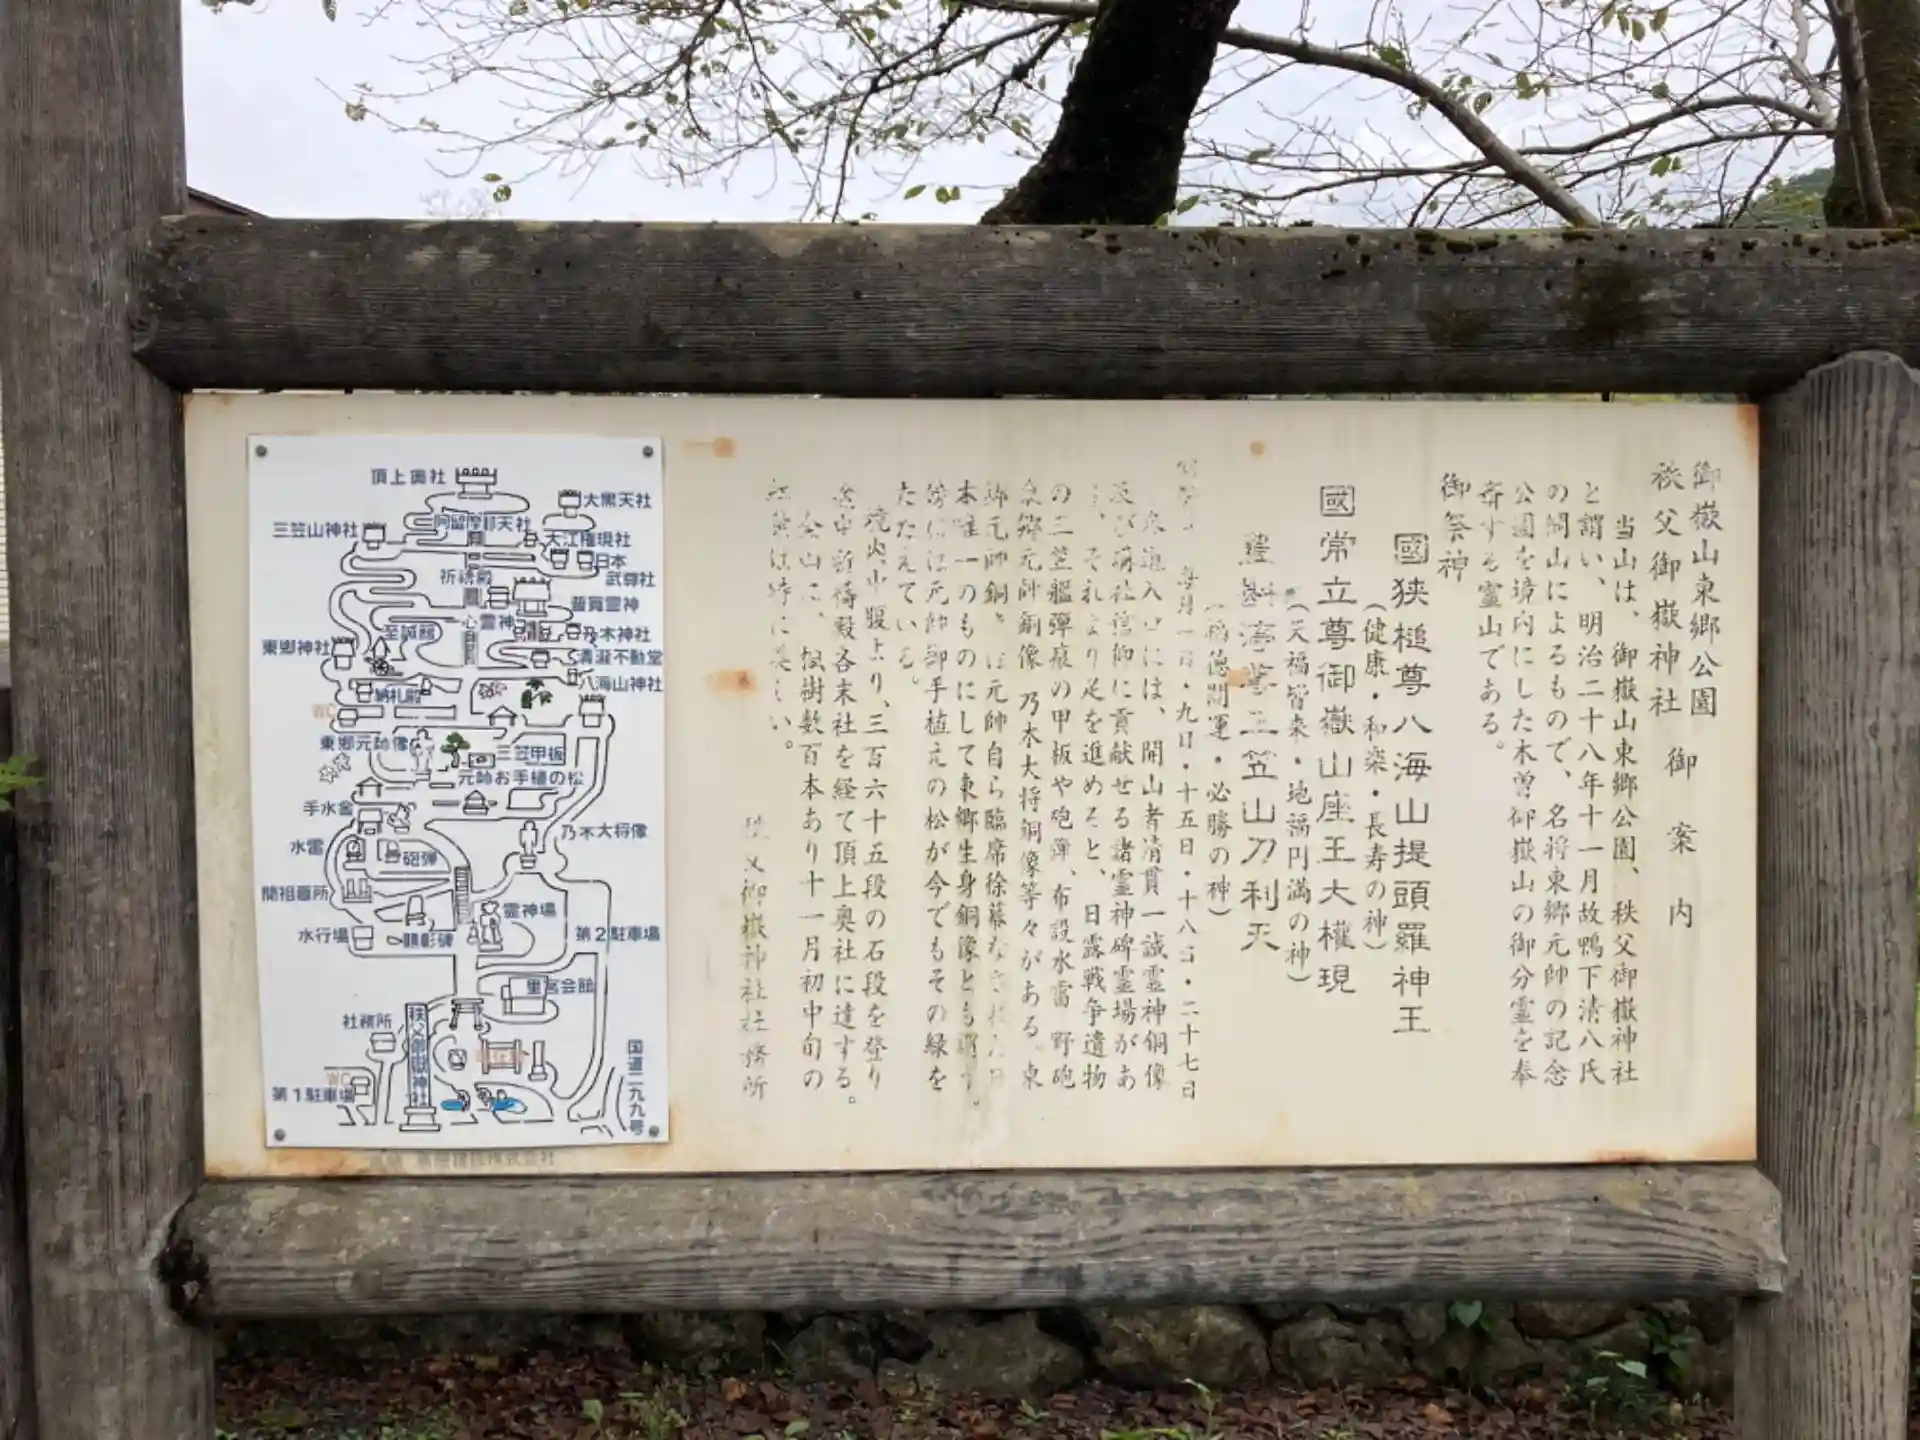 御嶽山東郷公園
秩父御嶽神社 御案内
当山は、御嶽山東郷公園、秩父御嶽神社
と謂い、明治二十八年十一月故鴨下清八氏
の開山によるもので、名将東郷元帥の記念
公園を境内にした木曽御嶽山の御分霊を奉
斎する霊山である。
御祭神
國狭槌尊八海山提頭羅神王
(健康・和楽・長寿の神)
國常立尊御嶽山座王大權現
(天福皆来・地福円満の神)
三笠山刀利天
(福徳開運・必勝の神)
毎月一日・九日・十五日・十八日・二十七日
参道入口には、開山者清貫一誠霊神銅像
及び講社信仰に貢献せる諸霊神碑霊場があ
り、それより足を進めると、日露戦争遺物
の三笠艦弾痕の甲板や砲弾、布設水雷、野砲
東郷元帥銅像、乃木大将銅像等々がある。東
郷元帥銅像は元帥自ら臨席徐幕なされた日
本唯一のものにして東郷生身銅像とも謂う。
傍には元帥御手植えの松が今でもその緑を
たたえている。
境内中腹より、三百六十五段の石段を登り
途中祈祷殿各末社を経て頂上奥社に達する。
全山に、楓樹数百本あり十一月初中旬の
紅葉は特に美しい。
秩父御嶽神社社務所
頂上奥社
大黒天社
阿留摩耶天社
三笠山神社
大江権現社
日本
武尊社
祈祷殿
普寛霊神
心霊神
至誠館
乃木神社
東郷神社
清瀧不動堂
八海山神社
納札殿
WC
東郷元帥像
三笠甲板
元帥お手植の松
手水舎
乃木大将像
水雷
砲弾
開祖墓所
霊神場
水行場
顕彰碑
第2駐車場
里宮会館
社務所
秩父御嶽神社
WC
第1駐車場
国道二九九号